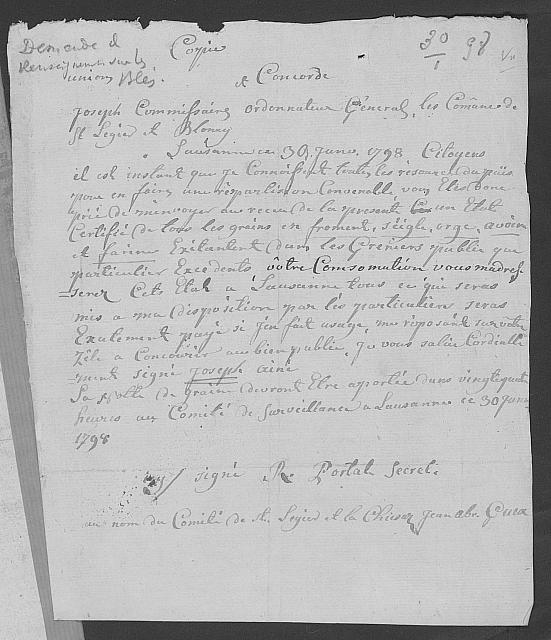 Demende de
Renseignements sur les
unions Bles.
Copie
30/1 98
et Concorde
Joseph Commissaire ordonnateur Général, les Comune de
St Legier et Blonay
Lausanne ce 30. Janv. 1798 Citoyens
il est instant que je Connoissent toutes les resources du païs
pour en faire une repartision Convenable vous êtes donc
prié de m'envoyer au receu de la present un Etat
Certifié de tous les grains en froment, seigle, orge, avoine
et farine Existantent dans les Greniers publie que
particulier Excedents vôtre Consomation vous m'adres-
serez Cets Etat a Lausanne tous ce qui seras
mis a ma disposition par les particuliers seras
Exatement payé si j'en fait usage, me reposant sur votre
Zéle a Concourir au bien publie, je vous salüe Cordialle
ment signé Joseph ainé
La Notte de graine devront Etre aportée dans vingtquatre
heures au Comité de Surveillance a Lausanne ce 30 Janv
1798
signé R. Portat Secret.
au nom du Comité de St. Legier et la Chiesaz Jean Abr.